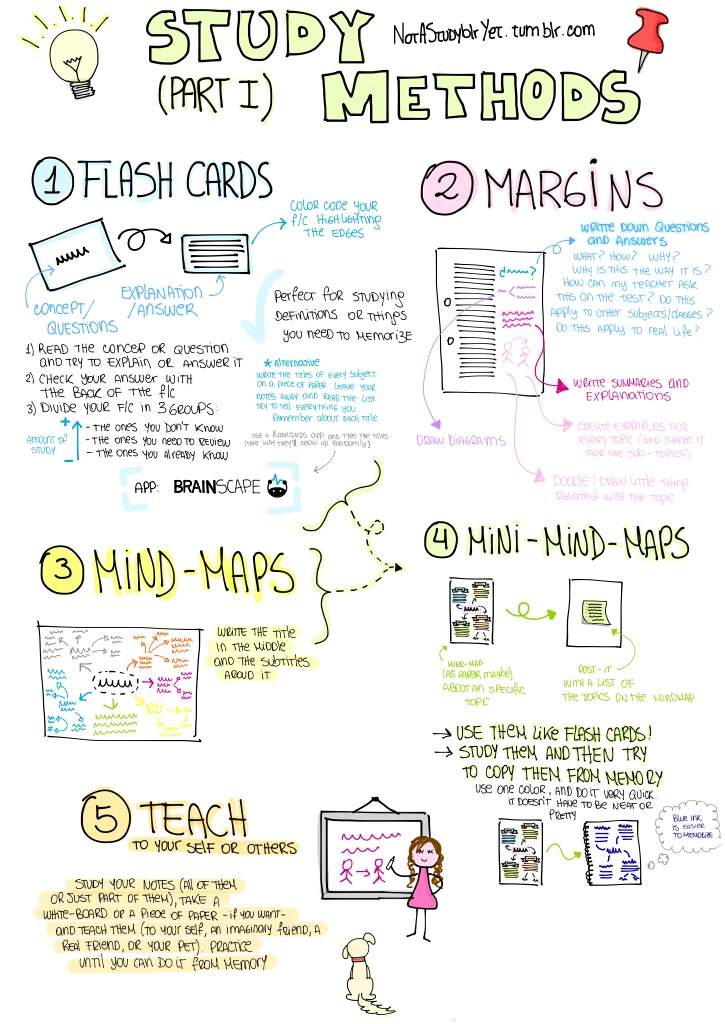 STUDY
NotAStudyblrYet.tumblr.com
(PART I) METHODS
1 FLASH CARDS
COLOR CODE YOUR
f/c HIGHLIGHTING
THE EDGES
CONCEPT/
QUESTIONS
EXPLANATION
/ANSWER
Perfect for studying
DEFINITIONS OR THINGS
YOU NEED TO MEMORIZE
1) READ THE CONCEP OR QUESTION
AND TRY TO EXPLAIN OR ANSWER IT
2) CHECK YOUR ANSWER WITH
THE BACK OF THE f/c
3) DIVIDE YOUR F/C IN 3 GROUPS:
+
AMOUNT OF
STUDY
-
- THE ONES YOU DON'T KNOW
- THE ONES YOU NEED TO REVIEW
- THE ONES YOU ALREADY KNOW
* Alternative
WRITE THE TITLES OF EVERY SUBJECT
ON A PIECE OF PAPER. LEAVE YOUR
NOTES AWAY AND READ THE LIST
TRY TO TELL EVERYTHING YOU
Remember about each title
use a flashcards app and type the titles
(that way they'll show up randomly)
APP: BRAINSCAPE
2 MARGINS
WRITE DOWN QUESTIONS
AND ANSWERS
WHAT? HOW? WHY?
WHY IS THIS THE WAY IT IS?
HOW CAN MY TEACHER ASK
THIS ON THE TEST? DO THIS
APPLY TO OTHER SUBJECTS/CLASSES?
DO THIS APPLY TO REAL LIFE?
WRITE SUMMARIES AND
EXPLANATIONS
DRAW DIAGRAMS
CREATE EXAMPLES FOR
EVERY TOPIC (AND MAYBE IT
FOR THE SUB-TOPICS)
DOODLE/DRAW LITTLE THING
RELATED WITH THE TOPIC
3 MIND-MAPS
WRITE THE TITLE
IN THE MIDDLE
AND THE SUBTITLES
AROUD IT
4 MINI-MIND-MAPS
MIND-MAP
(A5 PAPER MAYBE)
ABOUT AN SPECIFIC
TOPIC
POST-IT
WITH A LIST OF
THE TOPICS ON THE MINDMAP
→ USE THEM LIKE FLASH CARDS!
→ STUDY THEM AND THEN TRY
TO COPY THEM FROM MEMORY
USE ONE COLOR, AND DO IT VERY QUICK
IT DOESN'T HAVE TO BE NEAT OR
PRETTY
BLUE INK
IS EASIER
TO MEMORIZE
5 TEACH
TO YOUR SELF OR OTHERS
STUDY YOUR NOTES (ALL OF THEM
OR JUST PART OF THEM), TAKE A
WHITE-BOARD OR A PIECE OF PAPER -IF YOU WANT-
AND TEACH THEM (TO YOUR SELF, AN IMAGINARY FRIEND, A
REAL FRIEND, OR YOUR PET). PRACTICE
UNTIL YOU CAN DO IT FROM MEMORY